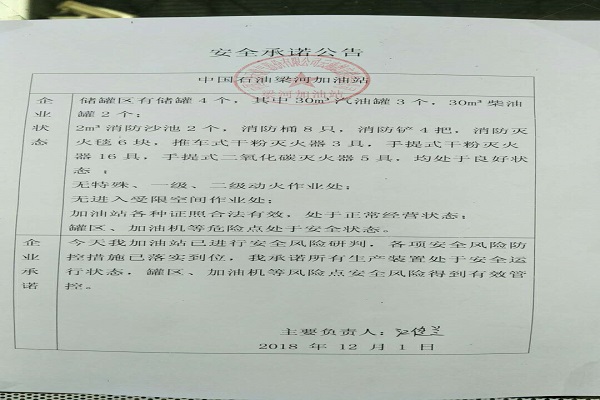 安全承诺公告
中国石油梁河加油站
梁河加油站
企业状态
储罐区有储罐4个，其中30m³汽油罐3个，30m³柴油
罐2个；
2m³消防沙池2个，消防桶8只，消防铲4把，消防灭
火毯6块，推车式干粉灭火器3具，手提式干粉灭火
器16具，手提式二氧化碳灭火器5具，均处于良好状
态；
无特殊、一级、二级动火作业处；
无进入受限空间作业处；
加油站各种证照合法有效，处于正常经营状态；
罐区、加油机等危险点处于安全状态。
企业承诺
今天我加油站已进行安全风险研判，各项安全风险防
控措施已落实到位，我承诺所有生产装置处于安全运
行状态，罐区、加油机等风险点安全风险得到有效管
控。
主要负责人：
2018 年 12 月 1 日